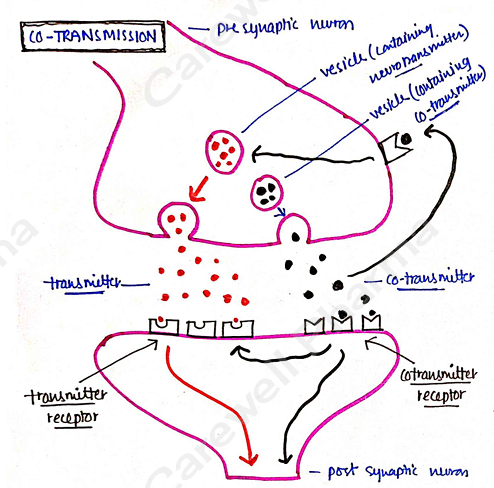 CO-TRANSMISSION
pre synaptic neuron
vesicle (containing
neurotransmitter)
vesicle (containing
co-transmitter)
transmitter
co-transmitter
transmitter
receptor
cotransmitter
receptor
post synaptic neuron
Carewell Pharma